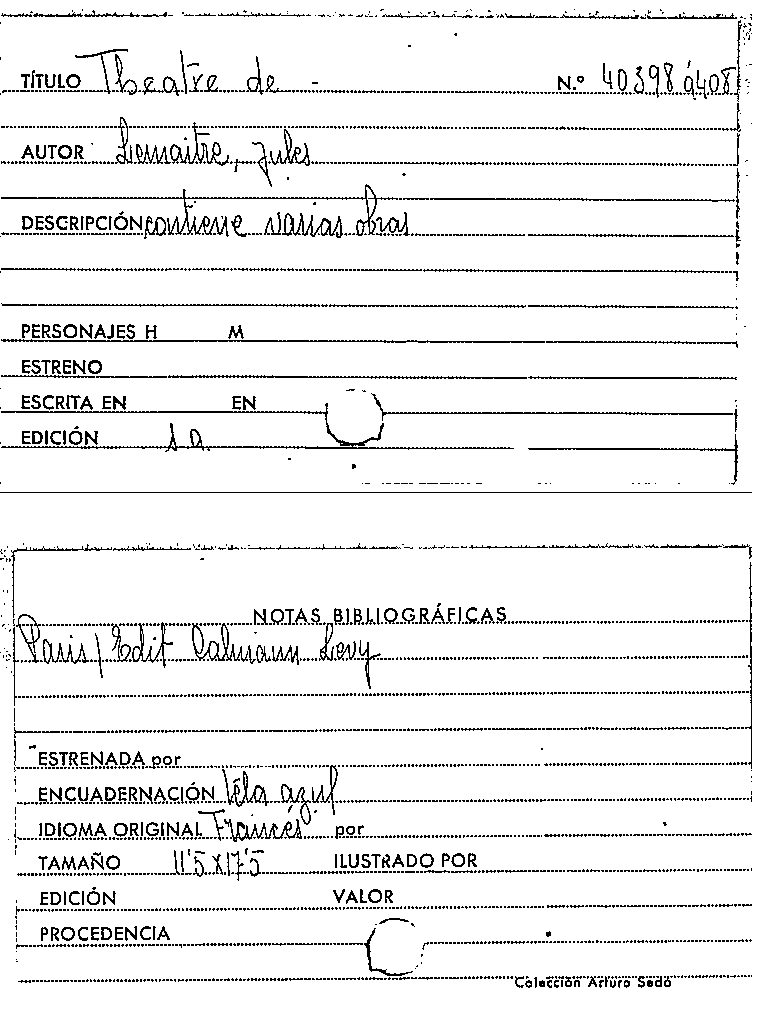 TÍTULO Theatre de - N.º 40398 á 408
AUTOR Lemaitre, Jules
DESCRIPCIÓN contiene varias obras
PERSONAJES H M
ESTRENO
ESCRITA EN EN
EDICIÓN 1a
NOTAS BIBLIOGRÁFICAS
Paris / Edit Calmann Levy
ESTRENADA por
ENCUADERNACIÓN tela azul
IDIOMA ORIGINAL Francés por
TAMAÑO 11'5 x 17'5 ILUSTRADO POR
EDICIÓN VALOR
PROCEDENCIA
Colección Arturo Sedó